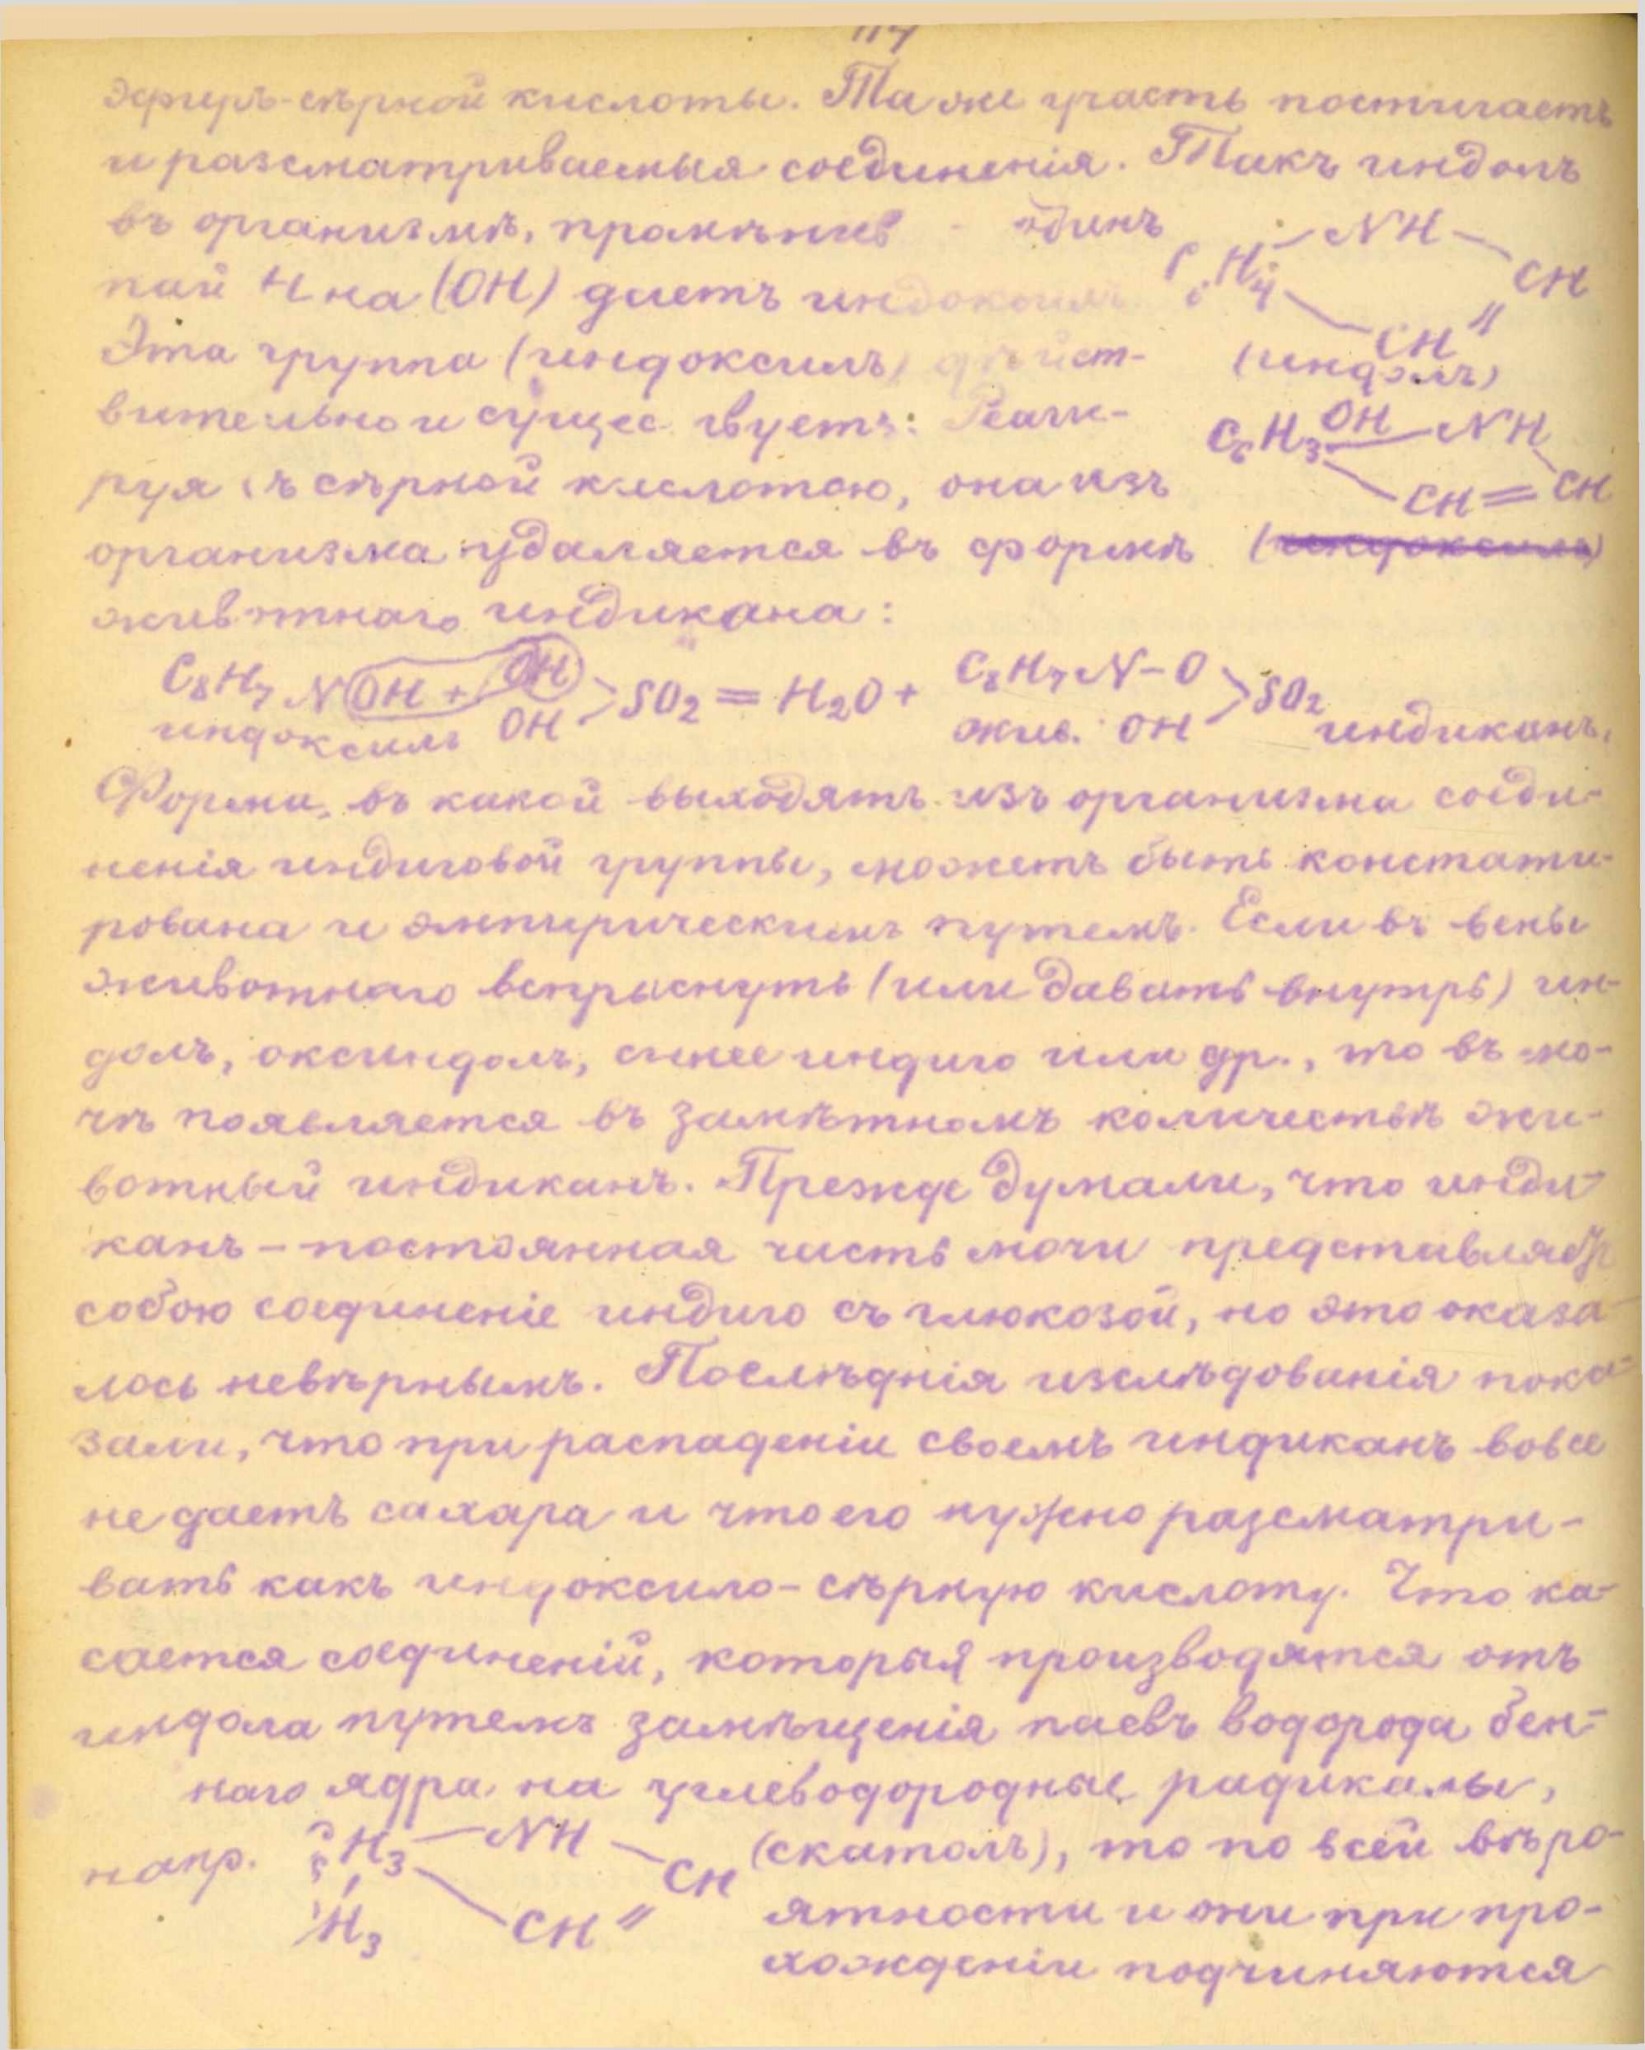 117
эфиръ-сѣрной кислоты. Та же участь постигаетъ
и разсматриваемыя соединенія. Такъ индолъ
въ организмѣ, промѣнивъ одинъ
пай H на (OH) даетъ индоксилъ
Эта группа (индоксилъ) дѣйст-
вительно и существуетъ: Реаги-
руя съ сѣрной кислотою, она изъ
организма удаляется въ формѣ
животнаго индикана:
C6H4 — NH — CH
CH "
(индолъ)
C6H3 OH — NH
CH = CH
(индоксилъ)
C8H7 N OH + OH > SO2 = H2O + C8H7 N-O > SO2
индоксилъ OH жив. OH индиканъ.
Форма, въ какой выходятъ изъ организма соеди-
ненія индиговой группы, можетъ быть констати-
рована и эмпирическимъ путемъ. Если въ вены
животнаго вспрыснуть (или давать внутрь) ин-
долъ, оксиндолъ, синее индиго или др., то въ мо-
чѣ появляется въ замѣтномъ количествѣ жи-
вотный индиканъ. Прежде думали, что инди-
канъ – постоянная часть мочи представляетъ
собою соединеніе индиго съ глюкозой, но это оказа-
лось невѣрнымъ. Послѣднія изслѣдованія пока-
зали, что при распаденіи своемъ индиканъ вовсе
не даетъ сахара и что его нужно разсматри-
вать какъ индоксило-сѣрную кислоту. Что ка-
сается соединеній, которыя производятся отъ
индола путемъ замѣщенія паевъ водорода бен-
наго ядра на углеводородные радикалы,
напр. C6H3 — NH — CH (скатолъ), то по всей вѣро-
CH3 CH " ятности и они при про-
хожденіи подчиняются